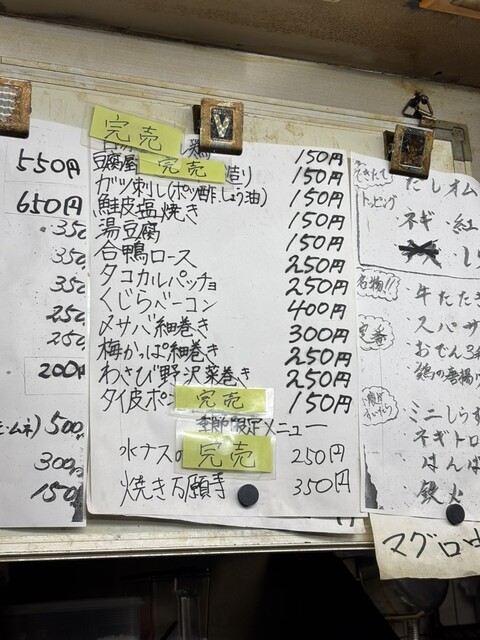 550円
650円
350
350
350
250
250
200円
500
300
150
完売
150円
豆腐屋 完売 造り 150円
ガツ刺し(ポン酢、しょう油) 150円
鮭皮塩焼き 150円
湯豆腐 150円
合鴨ロース 250円
タコカルパッチョ 250円
くじらベーコン 400円
〆サバ細巻き 300円
梅かっぱ細巻き 250円
わさび野沢菜巻き 250円
タイ皮ポン 完売 150円
季節限定メニュー
水ナスの 完売 250円
焼き万願寺 350円
できたて
だしオム
トッピング
ネギ・紅
し
名物!!
牛たたき
定番
スパサ
おでん3
鶏の唐揚げ
ミニしらす
ネギトロ
はんぱ
鉄火
マグロ中